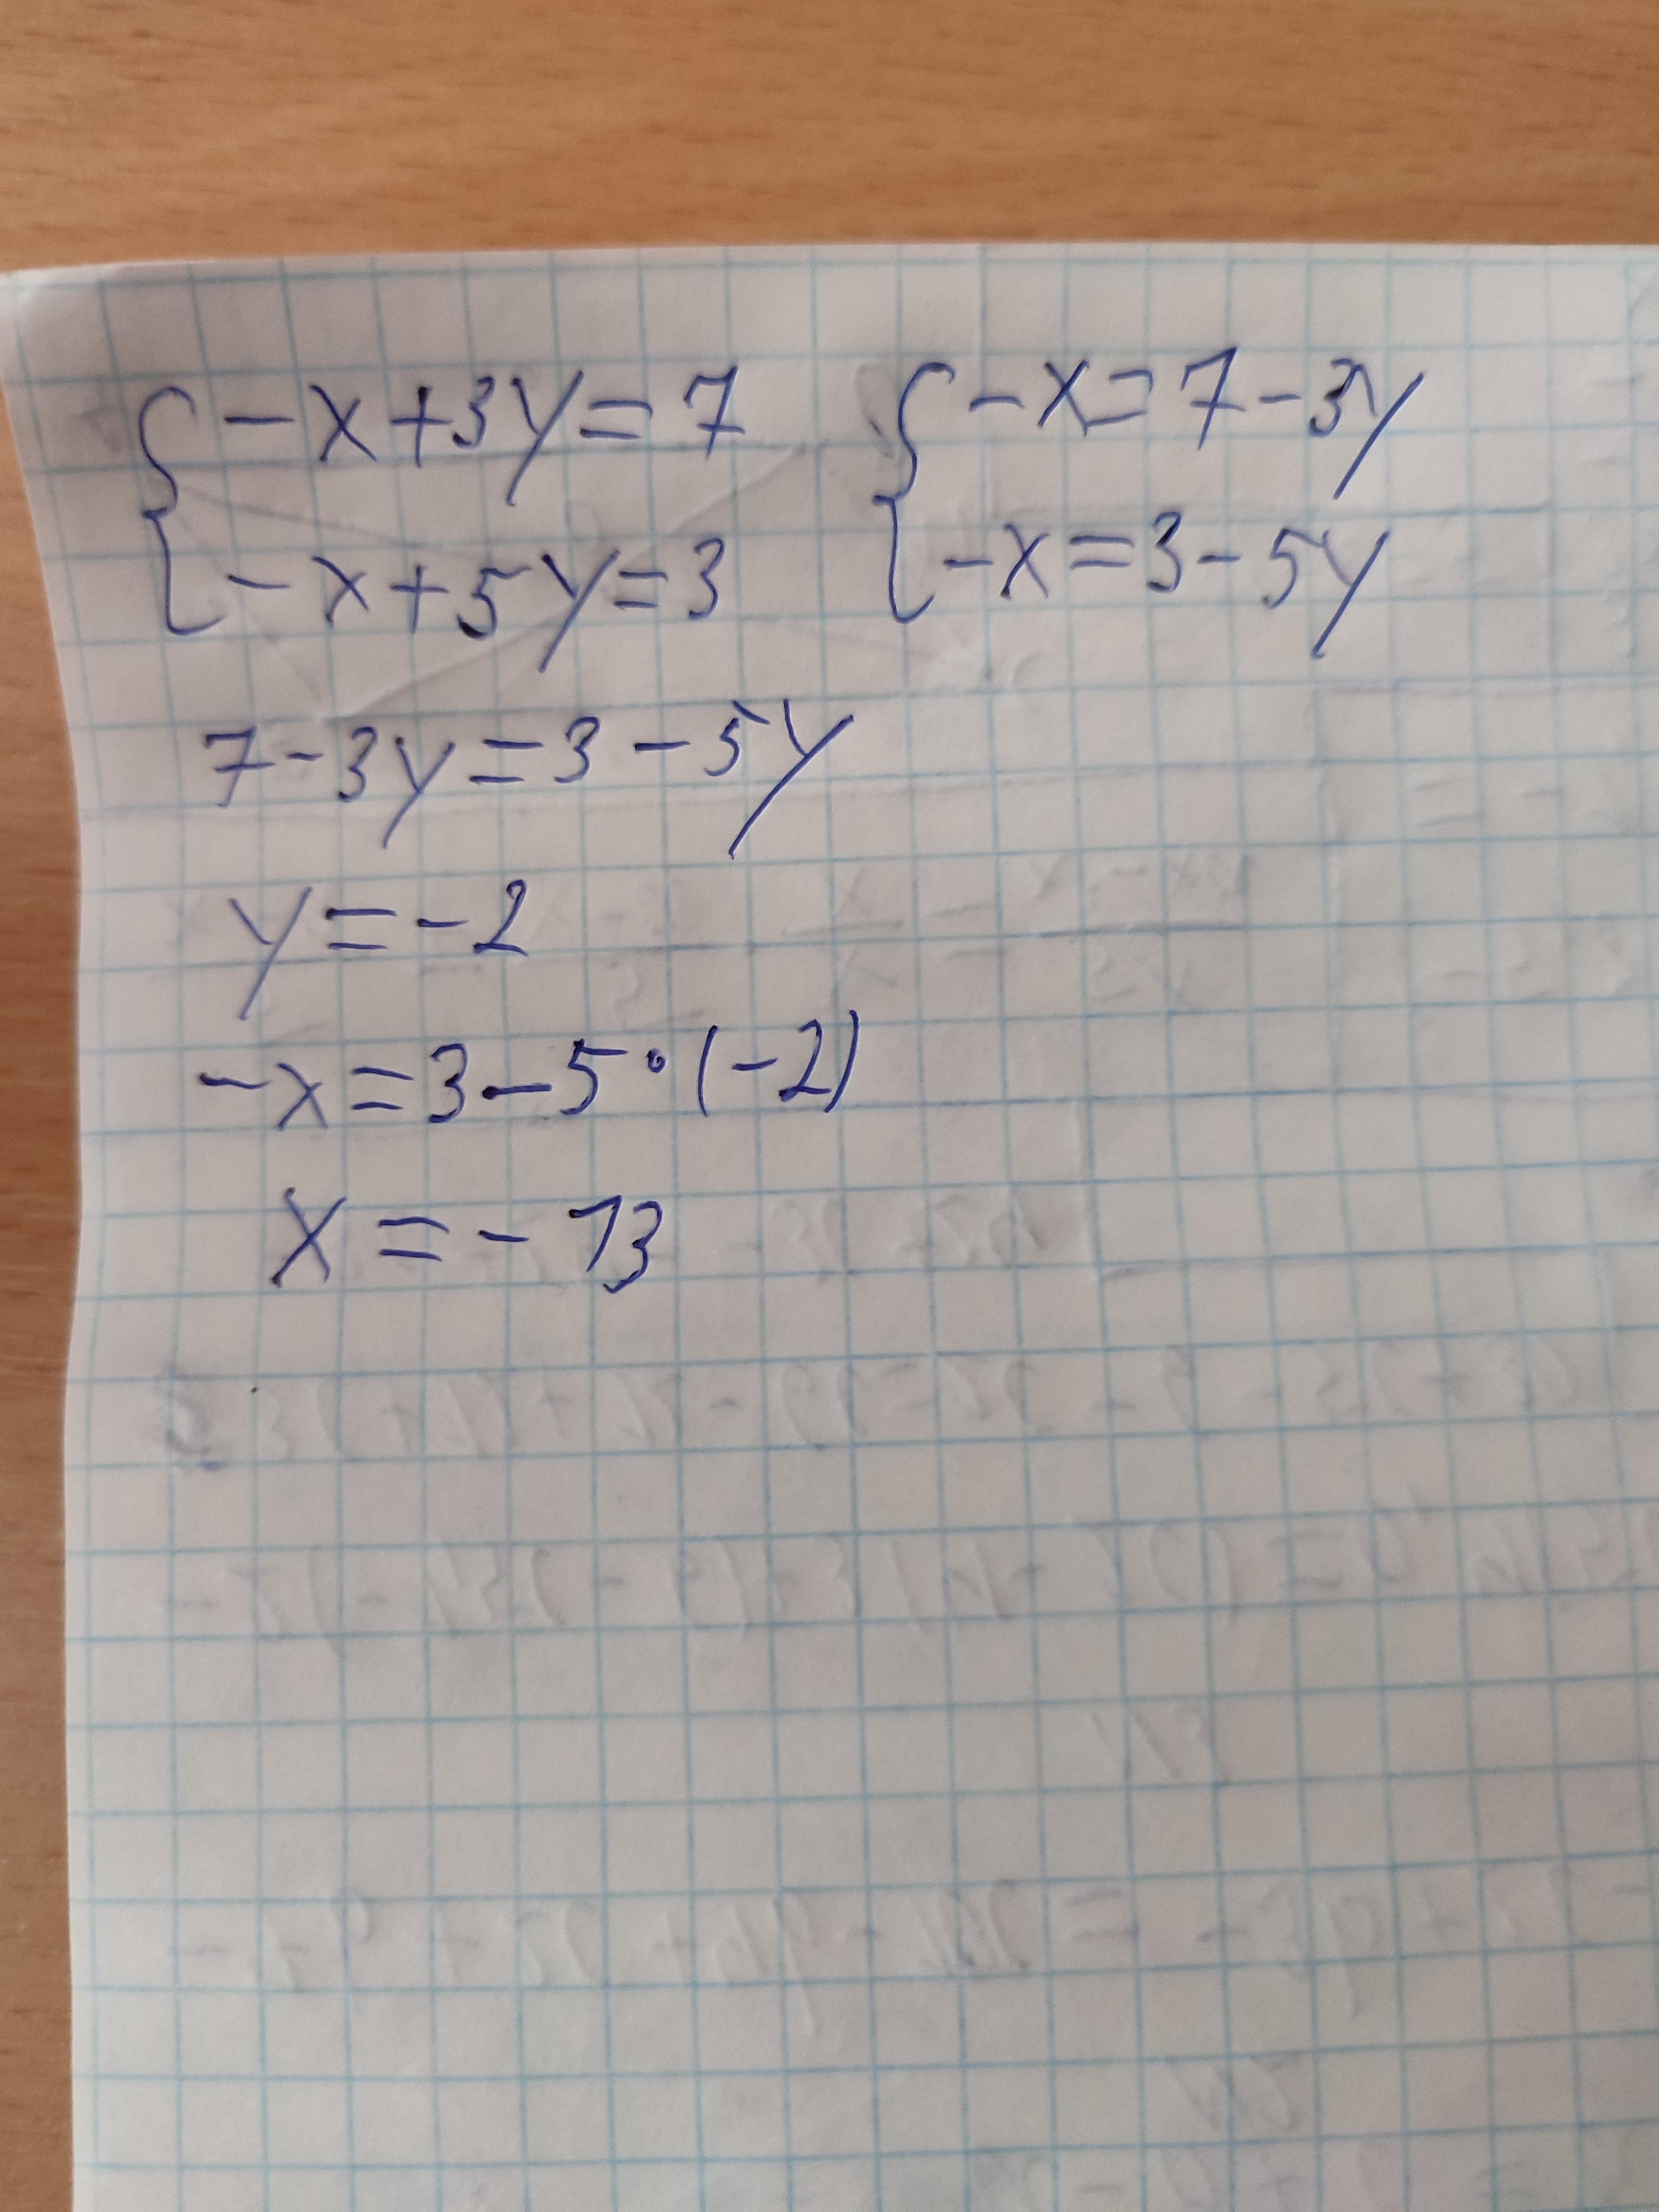 { -x+3y=7 { -x=7-3y
-x+5y=3 -x=3-5y
7-3y=3-5y
y=-2
-x=3-5·(-2)
x=-13